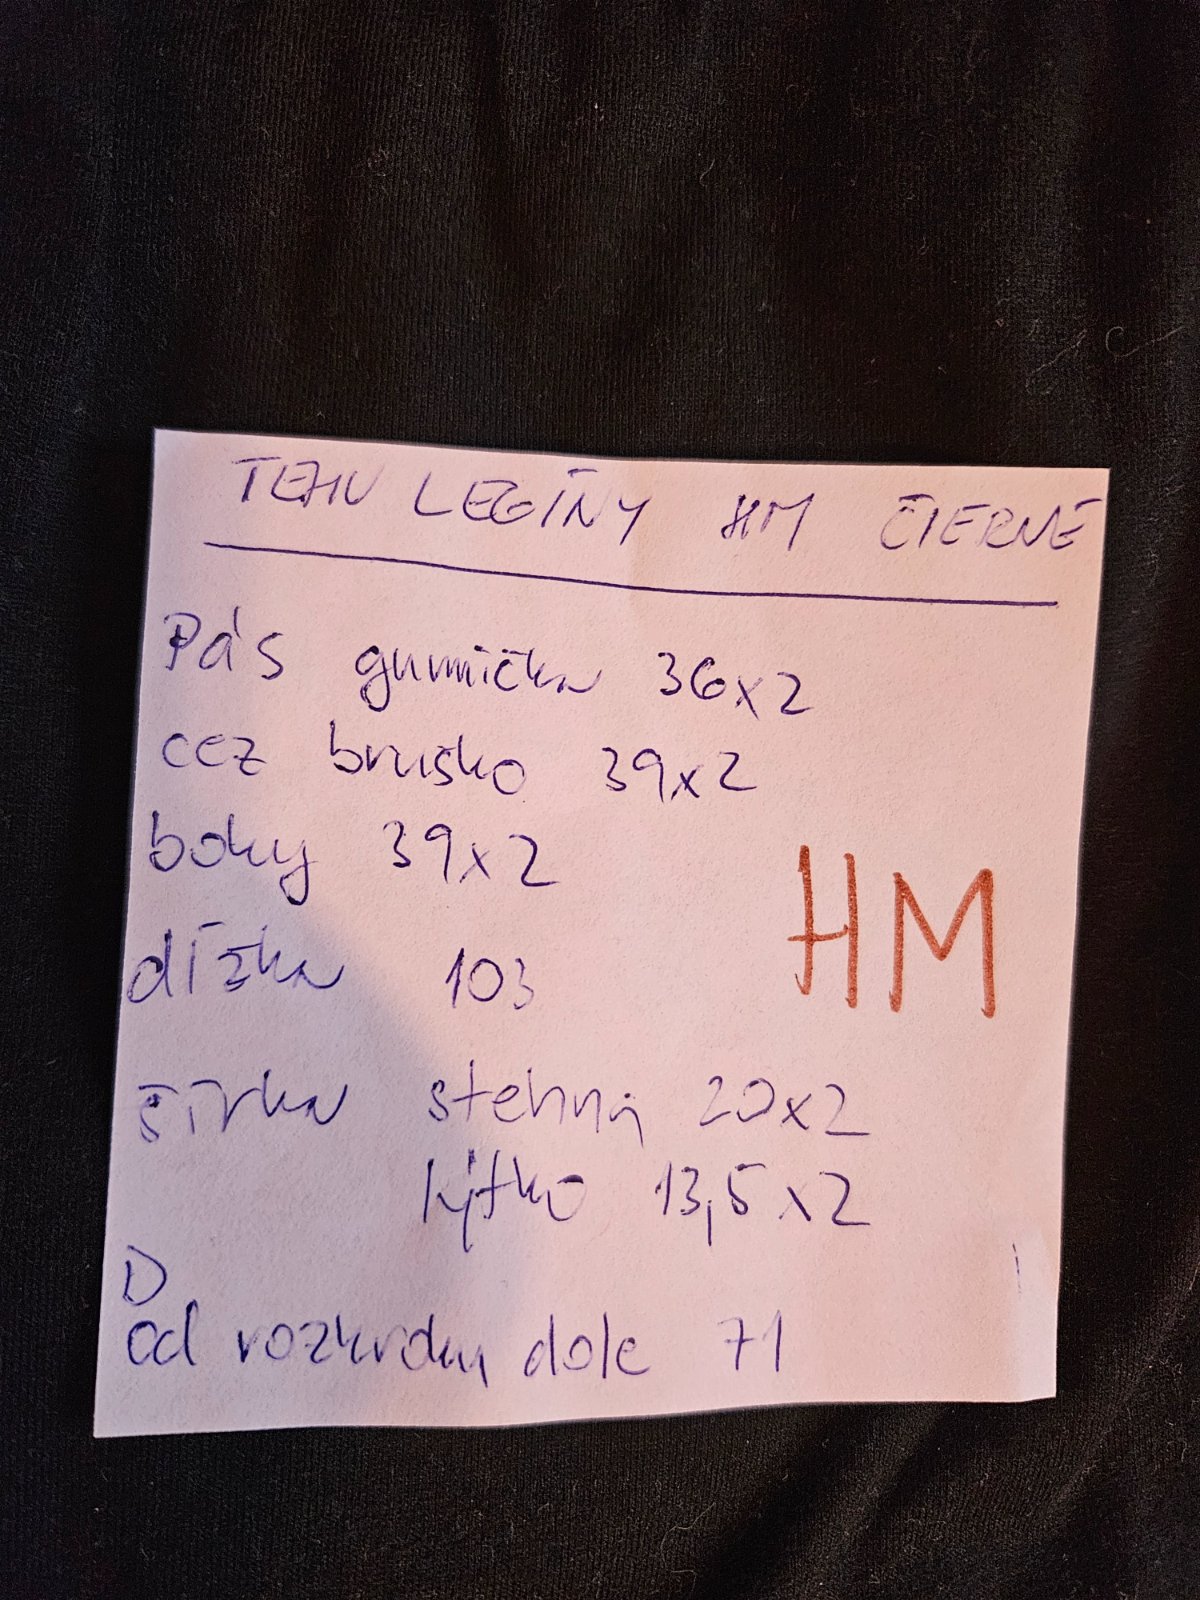 TEHU LEGÍNY HM ČIERNE
Pás gumička 36x2
cez bruško 39x2
boky 39x2
dĺžka 103
HM
šírka stehná 20x2
lýtko 13,5x2
D
od rozkroku dole 71